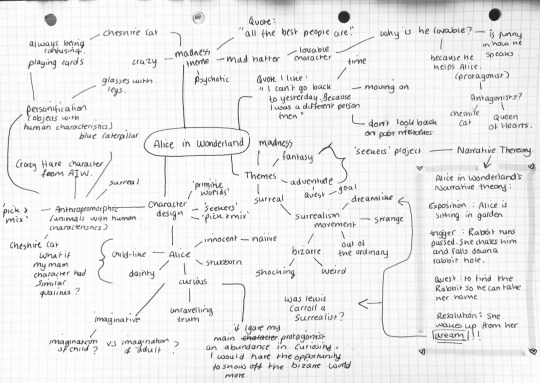 Cheshire Cat
always being
confusing.
playing cards
crazy
madness
theme
psychotic
mad hatter
lovable
character
Quote:
"all the best people are."
why is he lovable?
is funny
in how he
speaks.
because he
helps Alice.
(protagonist)
Antagonists?
Cat
Queen
of Hearts.
time
Quote I like!
"I can't go back
to yesterday. Because
I was a different person
then"
moving on
don't look back
on past mistakes
glasses with
legs.
Personification
(objects with
human characteristics)
blue caterpillar
Alice in Wonderland
madness
fantasy
Themes
adventure
quest
goal
surreal
'seekers' project
Narrative Theory
Crazy Hare character
from AIW.
surreal
'pick &
mix'
Anthropomorphic
(animals with human
characteristics)
Character
design
'primitive
worlds'
'seekers'
'pick & mix'
dreamlike
surrealism
movement
strange
out of
the ordinary
bizarre
shocking
weird
Cheshire Cat
What if
my main
character had
similar
qualities?
child-like
Alice
innocent
naive
stubborn
dainty
curious
imaginative
unravelling
truth
imagination
of child?
vs
imagination
of adult?
Was Lewis
Carroll a
Surrealist?
if I gave my
main protagonist
an abundance in Curiosity,
I would have the opportunity
to show off the bizare world
more
Alice in Wonderland's
Narrative theory:
Exposition: Alice is
sitting in garden
trigger: Rabbit runs
passed. She chases him
and falls down a
rabbit hole.
Quest: to find the
Rabbit so he can take
her home
Resolution: She
wakes up from her
dream!!!